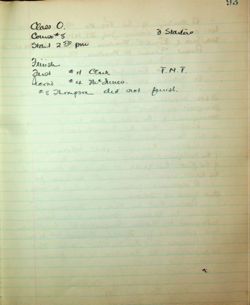 Class O.
Course #5 3 Starters
Start 2 50 pm
Finish
First #11 Clark T.N.T.
Second #4
#5 Thompson did not finish.